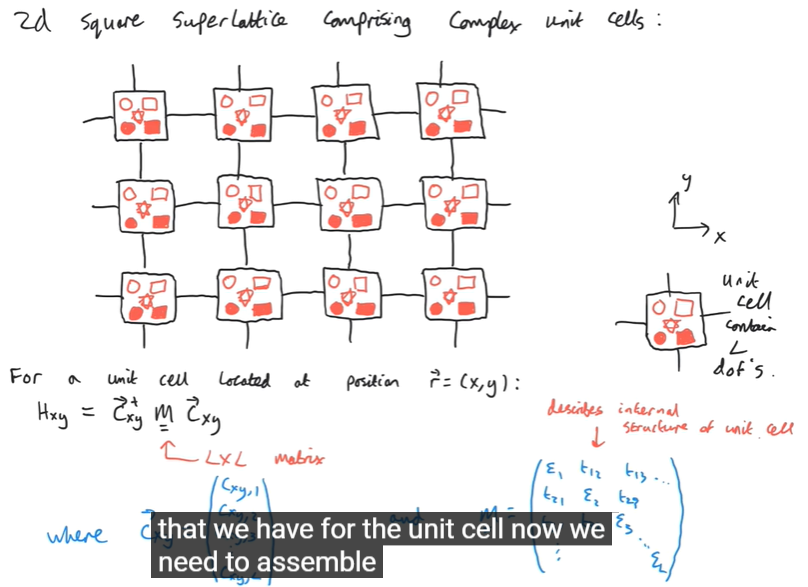 2d square superlattice comprising complex unit cells:
y
x
unit
cell
contain
L
dof's.
For a unit cell located at position r⃗ = (x,y):
Hxy = C⃗†xy m C⃗xy
LxL matrix
describes internal
structure of unit cell
where C⃗xy
Cxy,1
and m =
ε1 t12 t13 ...
t21 ε2 t23
ε3
εL
that we have for the unit cell now we
need to assemble